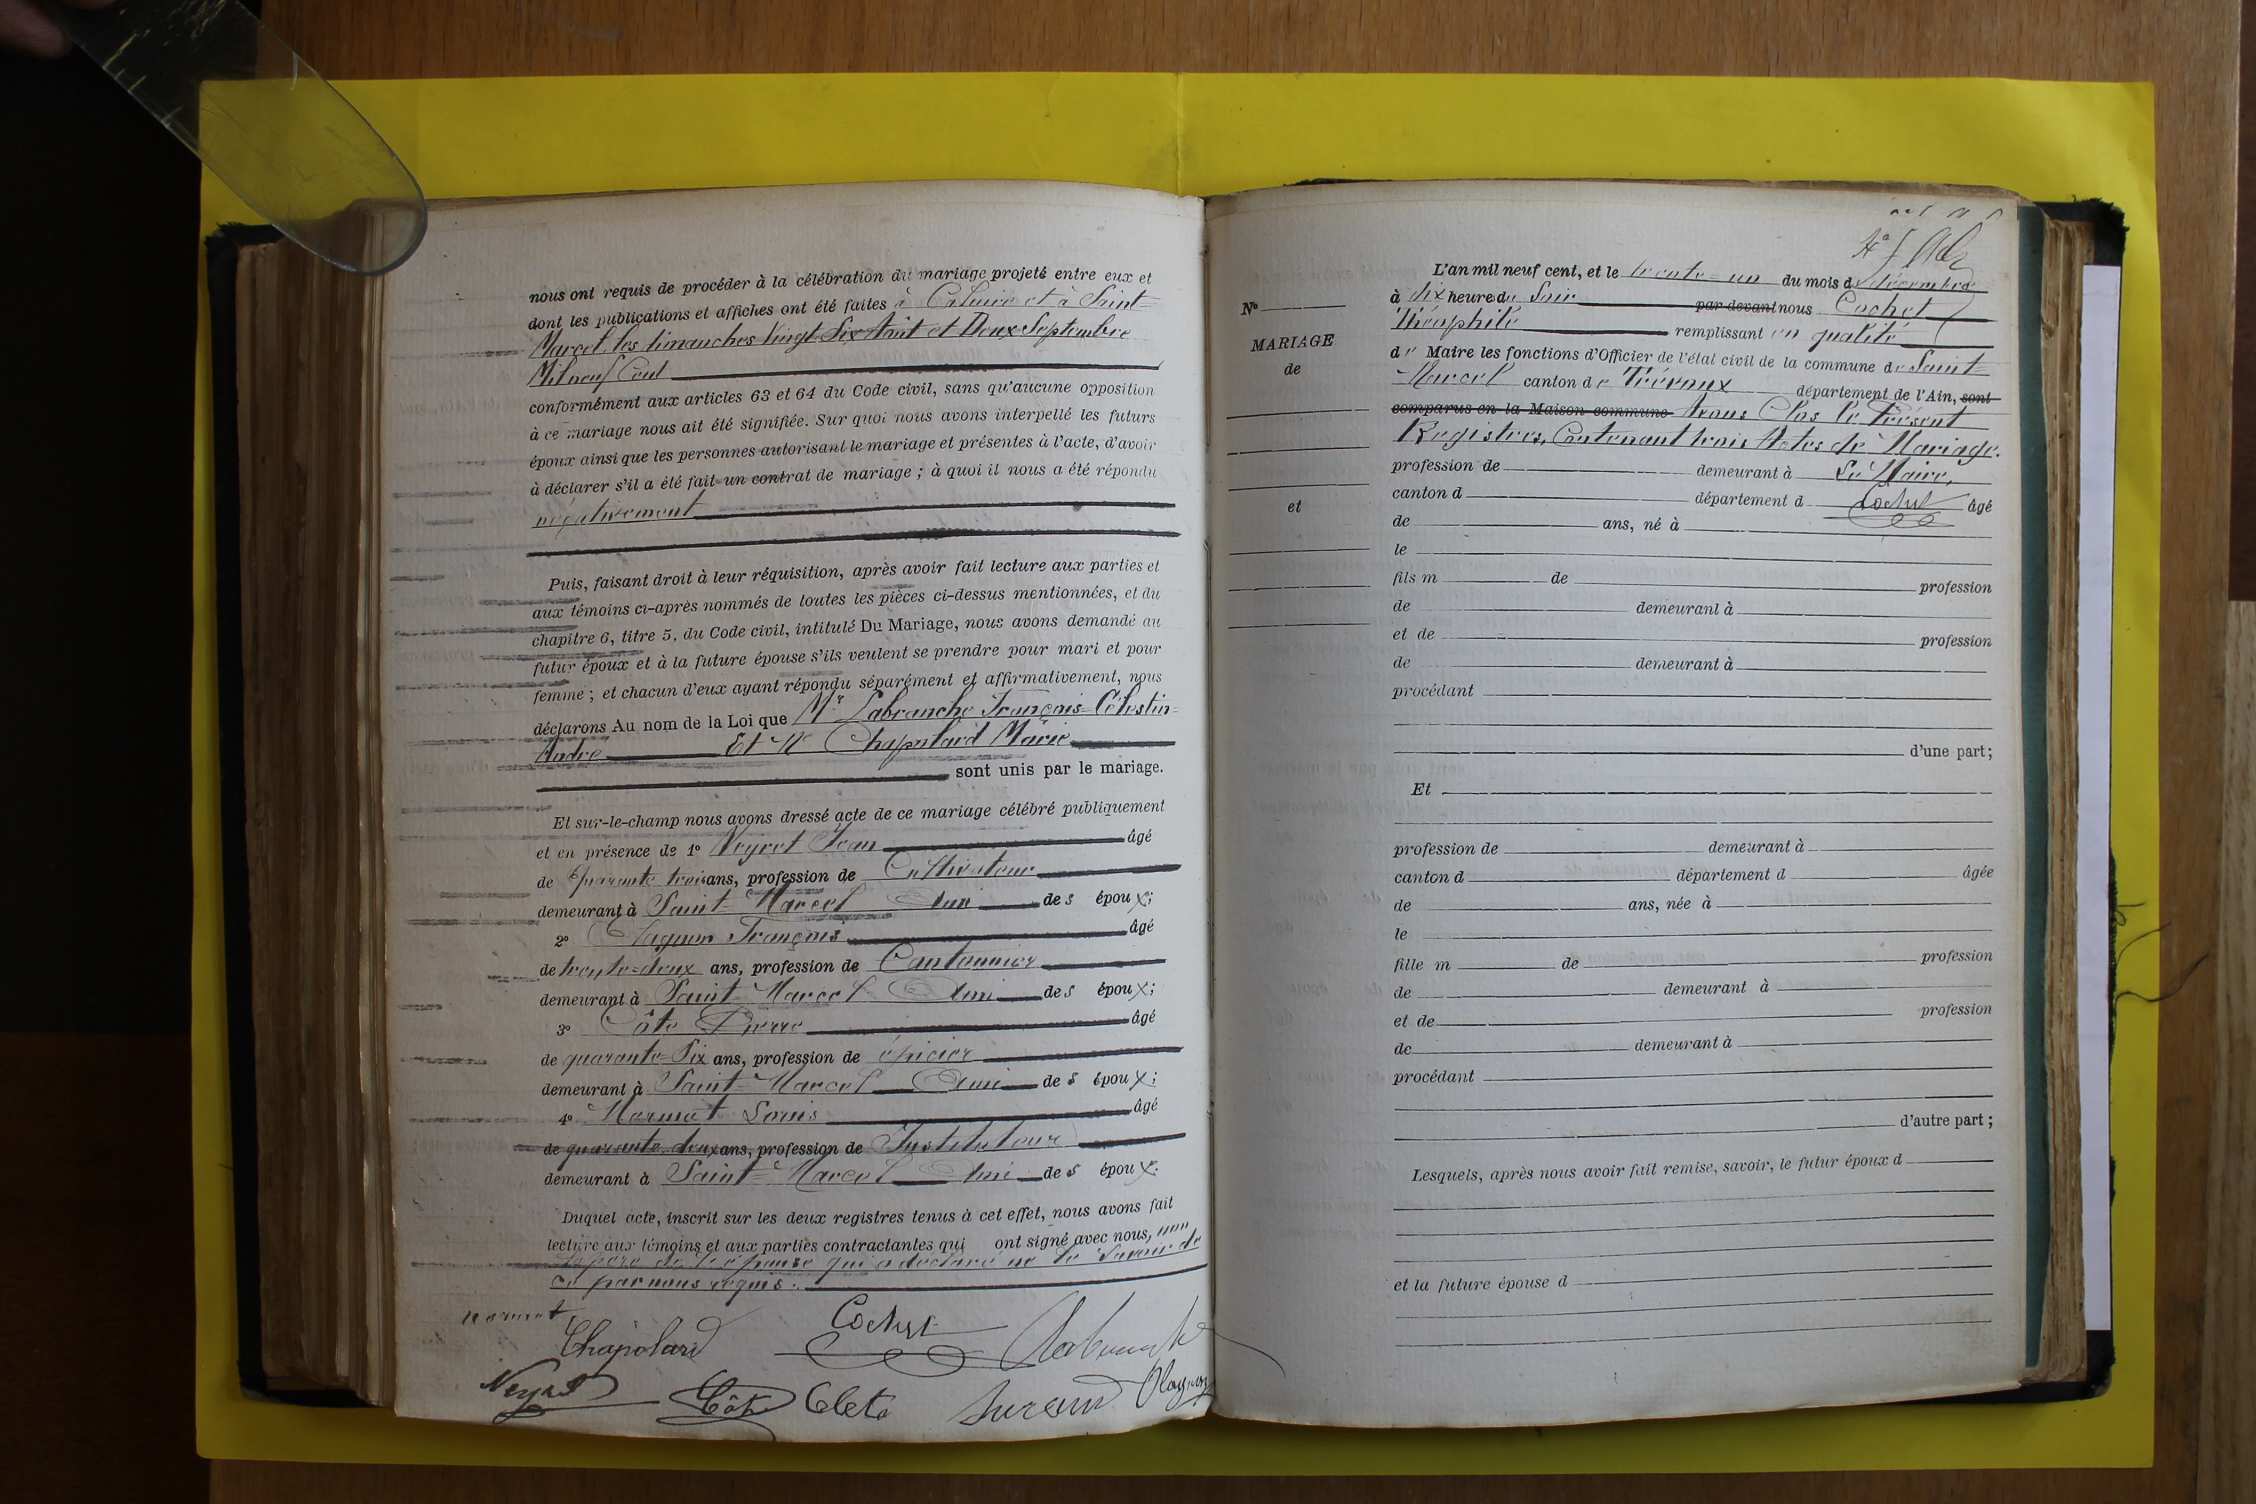 nous ont requis de procéder à la célébration du mariage projeté entre eux et
dont les publications et affiches ont été faites à Caluire et à Saint-
Marcel les dimanches Vingt-Six Août et Deux Septembre
Mil neuf Cent
conformément aux articles 63 et 64 du Code civil, sans qu'aucune opposition
à ce mariage nous ait été signifiée. Sur quoi nous avons interpellé les futurs
époux ainsi que les personnes autorisant le mariage et présentes à l'acte, d'avoir
à déclarer s'il a été fait un contrat de mariage ; à quoi il nous a été répondu
négativement
Puis, faisant droit à leur réquisition, après avoir fait lecture aux parties et
aux témoins ci-après nommés de toutes les pièces ci-dessus mentionnées, et du
chapitre 6, titre 5, du Code civil, intitulé Du Mariage, nous avons demandé au
futur époux et à la future épouse s'ils veulent se prendre pour mari et pour
femme ; et chacun d'eux ayant répondu séparément et affirmativement, nous
déclarons Au nom de la Loi que Mr Labranche François-Célestin-
André Et Mlle Chapolard Marie
sont unis par le mariage.
Et sur-le-champ nous avons dressé acte de ce mariage célébré publiquement
et en présence de 1o Neyret Jean âgé
de quarante trois ans, profession de Cultivateur
demeurant à Saint-Marcel Ami des époux ;
2o Plagnon François âgé
de trente-deux ans, profession de Cantonnier
demeurant à Saint-Marcel Ami des époux ;
3o Côte Pierre âgé
de quarante-Six ans, profession de épicier
demeurant à Saint-Marcel Ami des époux ;
4o Marmet Louis âgé
de quarante-deux ans, profession de Instituteur
demeurant à Saint-Marcel Ami des époux.
Duquel acte, inscrit sur les deux registres tenus à cet effet, nous avons fait
lecture aux témoins et aux parties contractantes qui ont signé avec nous, non
le père de l'épouse qui a déclaré ne le Savoir de
ce par nous requis.
Cochet
Chapolard Labranche
Neyret Côte Plagnon
No
MARIAGE
de
et
L'an mil neuf cent, et le trente-un du mois de décembre
à dix heures du Soir par devant nous Cochet
Théophile remplissant en qualité
de Maire les fonctions d'Officier de l'état civil de la commune de Saint-
Marcel canton de Trévoux département de l'Ain, sont
comparus en la Maison commune Avons Clos le Présent
Registres, Contenant trois Actes de Mariage.
profession de demeurant à Le Maire,
canton d département d Cochet âgé
de ans, né à
le
fils m de profession
de demeurant à
et de profession
de demeurant à
procédant
d'une part ;
Et
profession de demeurant à
canton d département d âgée
de ans, née à
le
fille m de profession
de demeurant à
et de profession
de demeurant à
procédant
d'autre part ;
Lesquels, après nous avoir fait remise, savoir, le futur époux d
et la future épouse d